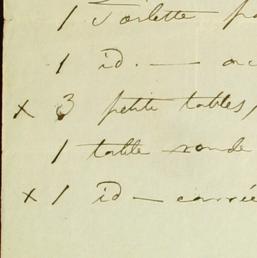 1 Toilette
1 id. —
x 3 petite tables,
1 table ronde
x 1 id — carrée